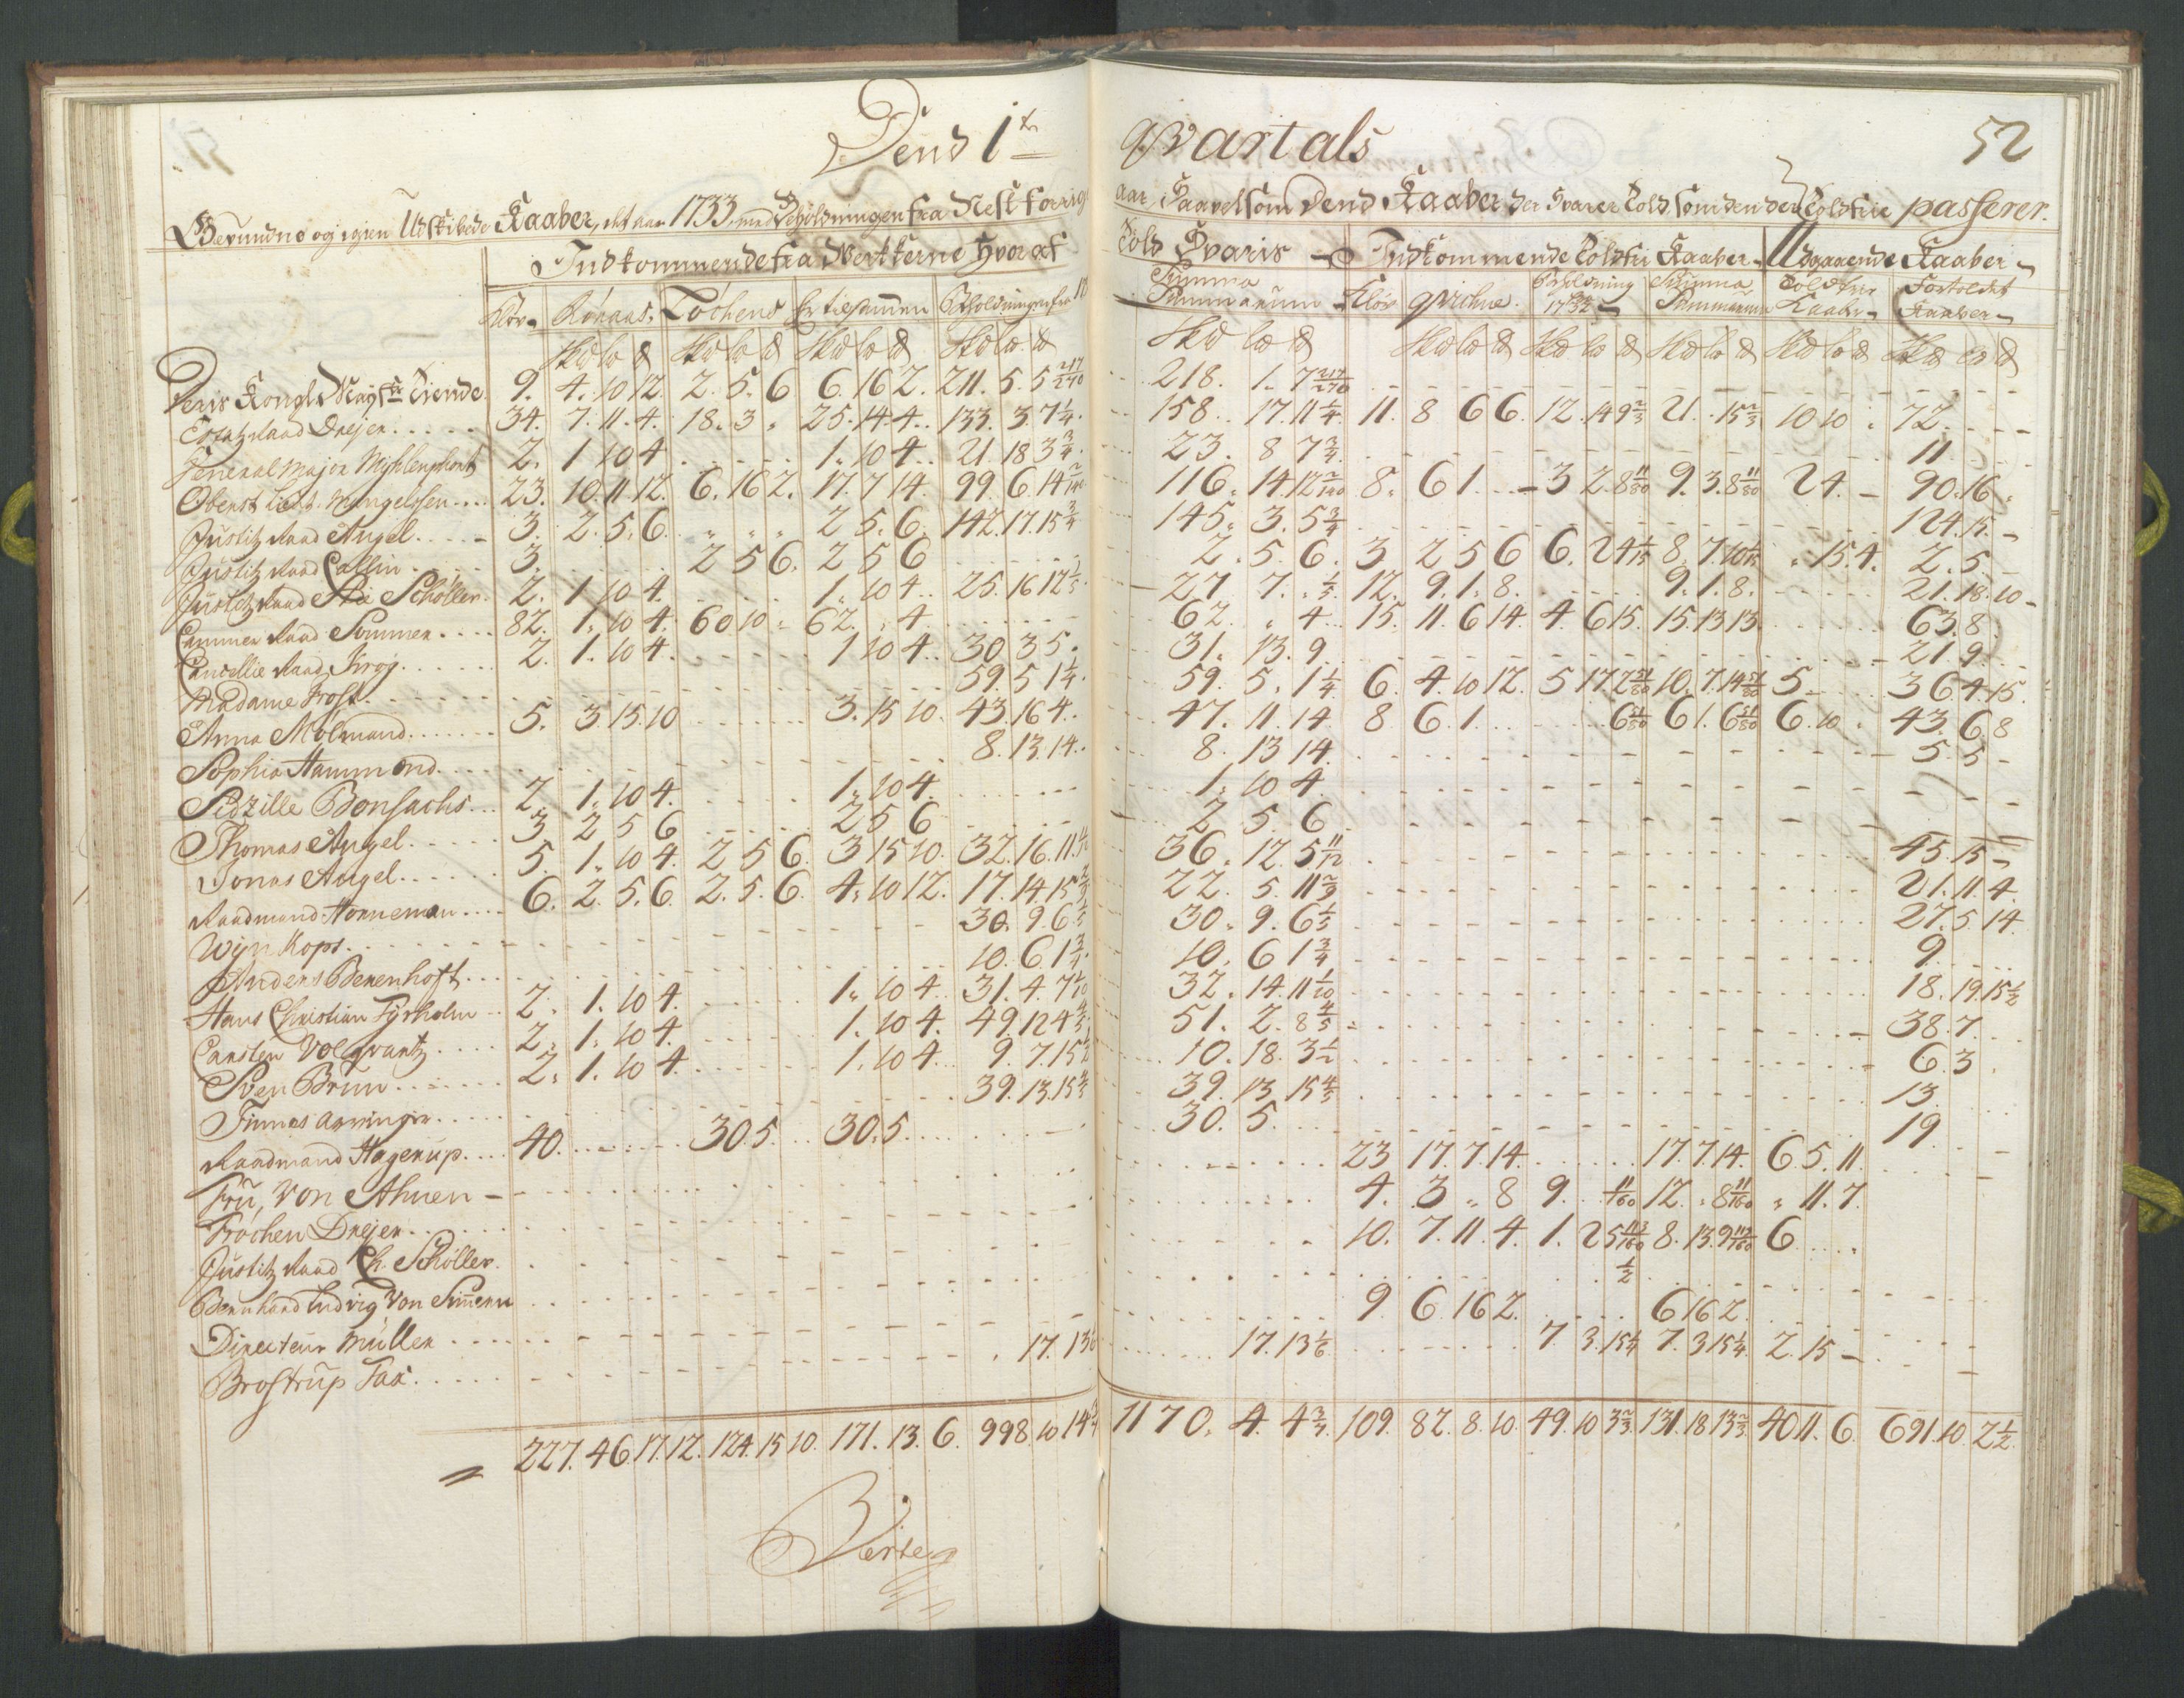 Dend 1te qvartals
52
Befundne og igien Udskibede Kaaber, det aar 1733 med Beholdningen fra Nest forrige aar, Saavel som Dend Kaaber der Svarer Told, som den der Toldfrie passerer.
Indkommende fra Werkkerne Hvoraf Told Svaris - Indkommende Toldfri Kaaber - Udgaaende Kaaber -
Röraas. Löchens Er tilsammen Beholdningen fra Summa Summarum qvichne. Beholdning 1732 Summa Summarum Toldfrie Kaaber - Fortoldet Kaaber -
Deris Kongl. Mayst. Tiende. 9. 4. 10 12. 2. 5. 6 6. 16 2. 211. 5. 5 217/270 218. 1. 7 217/270
Etatz Raad Drejer 34. 7. 11. 4. 18. 3 „ 25. 14. 4. 133. 3. 7 1/4 158. 17. 11 1/4 11. 8 6 6. 12. 14 9 2/3 21. 15 2/3 10 10 72.
General Major 2. 1 10 4 1. 10 4. 21. 18 3 3/4 23. 8 7 3/4 11
Oberst 23. 10. 11. 12. 6. 16 2. 17. 7 14. 99. 6. 14 116. 14. 12 8. 6 1. - 3 2. 8 11/80 9. 3. 8 11/80 24. - 90. 16
Justitz Raad Angel 3. 2. 5. 6. 2 5. 6. 142. 17. 15 3/4 145. 3. 5 3/4 124. 15.
Justitz Raad Collin 3. 2 5 6. 2 5 6 2. 5. 6. 3 2 5 6 6. 2 4 1/15 8. 7. 10 1/15 „ 15. 4. 2. 5.
Justitz Raad Schöller 2. 1 10 4. 1. 10 4. 25. 16 12 1/3 27 7. 1/3 12. 9. 1. 8. 9. 1. 8. 21. 18. 10
Cammer Raad Sommer 82. 1. 10 4. 60 10 62. „ 4 62. „ 4 15. 11. 6 14. 4. 6 15. 15. 13 13 63. 8
Cancellie Raad Krog 2. 1. 10 4. 1 10 4. 30. 3 5. 31. 13. 9 21. 9
Madame Frost 59. 5 1 1/4 59. 5. 1 1/4 6. 4. 10 12. 5 17. 2 51/80 10. 7. 14 51/80 5. 36. 4. 15
Anna Molmand 5. 3. 15. 10 3. 15 10. 43. 16 4. 47. 11. 14 8 6. 1. 6 51/80 6 1. 6 51/80 6. 10 43. 6. 8
Sophia Hammond. 8. 13. 14. 8. 13 14 5. 5
Sidzille Bonsachs 2. 1. 10 4. 1. 10 4. 1. 10 4
Thomas Angel 3 2 5 6 2 5 6 2 5. 6
Jonas Angel 5. 1. 10 4. 2 5 6. 3 15 10. 32. 16. 11. 36. 12. 5 11/12 45. 15
Raadmand Horneman 6. 2. 5. 6. 2. 5. 6. 4. 10 12. 17. 14. 15 2/3 22. 5. 11 2/3 21. 11 4
Wijn Kops. 30. 9. 6 1/3 30. 9. 6 1/3 27. 5. 14
Anders Berenhoft 10. 6. 1 3/4 10. 6 1 3/4 9.
Hans Christian Fyrholm 2. 1. 10 4. 1. 10 4. 31. 4. 7 1/10 32. 14. 11 1/10 18. 19. 15 1/2
Carsten Volqvartz 2. 1. 10 4. 1. 10 4. 49. 12 4 4/5 51. 2. 8 4/5 38. 7.
Sven Brun 2. 1. 10 4. 1. 10 4. 9. 7. 15 1/2 10. 18. 3 1/2 6. 3
Finnes arvinger 39. 13. 15 4/5 39. 13. 15 4/5 13.
Raadmand Hagerup 40. 30. 5. 30. 5. 30. 5. 19.
Fru, Von Ahnen 23 17. 7. 14. 17. 7 14. 6 5. 11
Fröchen Drejer 4. 3 „ 8 9. 11/160 12. „ 8 11/160 „ 11. 7
Justitz Raad Ch. Schöller. 10. 7. 11. 4. 1. 2 5 113/160 8. 13. 9 113/160 6
Bernhard Ludvig Von 1/2
Directeur Müller 9 6 16 2. 6 16 2.
Brostrup Fax. 17. 13 1/6 17. 13 1/6 7. 3. 15 1/4 7. 3 15 1/4 2. 15
227. 46 17. 12. 124. 15 10. 171. 13. 6. 998. 10 14 1170. 4. 4 3/4 109. 82. 8. 10. 49. 10 3 2/3 131. 18 13 2/3 40 11. 6. 691. 10. 2 1/2
Verte